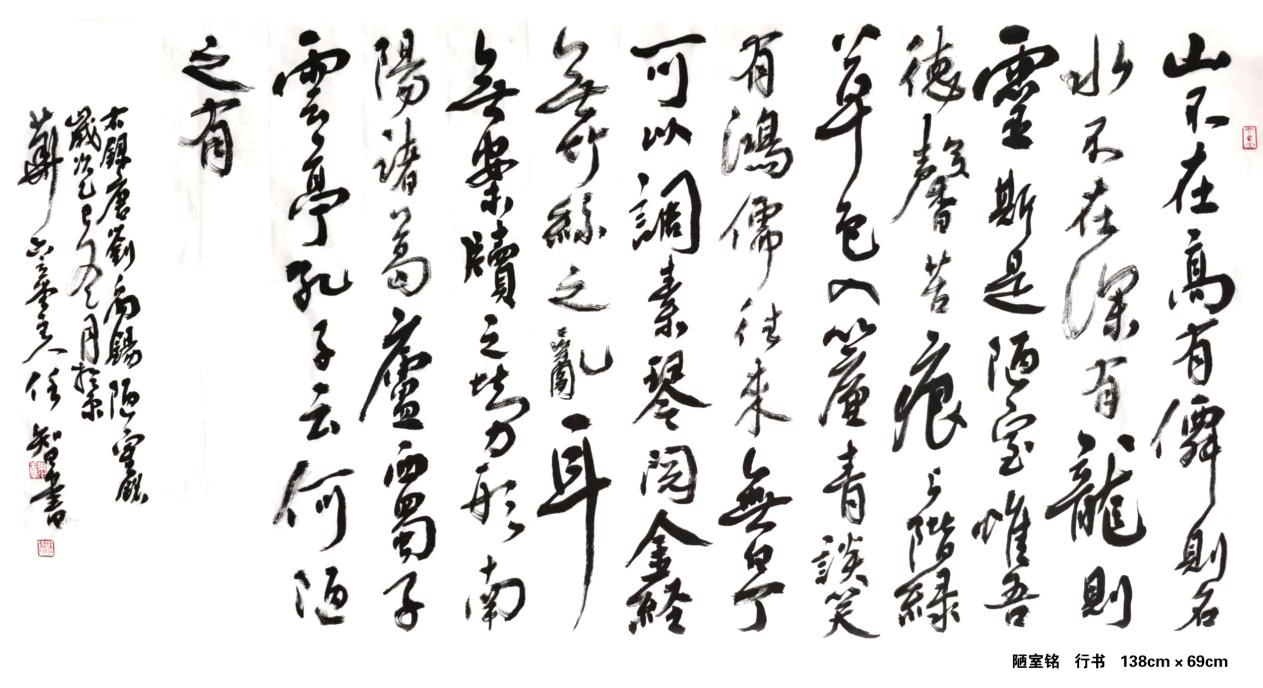 山不在高有僊則名
水不在深有龍則
靈斯是陋室惟吾
德馨苔痕上階緑
草色入簾青談笑
有鴻儒往来無白丁
可以調素琴閲金経
無竹絲之亂耳
無案牘之勞形南
陽諸葛廬西蜀子
雲亭孔子云何陋
之有
右録唐劉禹錫陋室銘
歲次乙巳月於京
華主人任智書
陋室铭 行书 138cm × 69cm